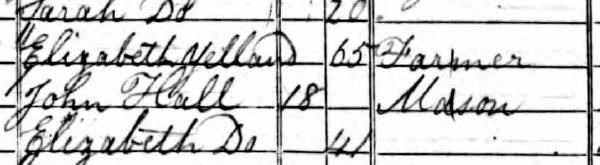 Sarah Do 20
Elizabeth Yelland 65 Farmer
John Hall 18 Mason
Elizabeth Do 41